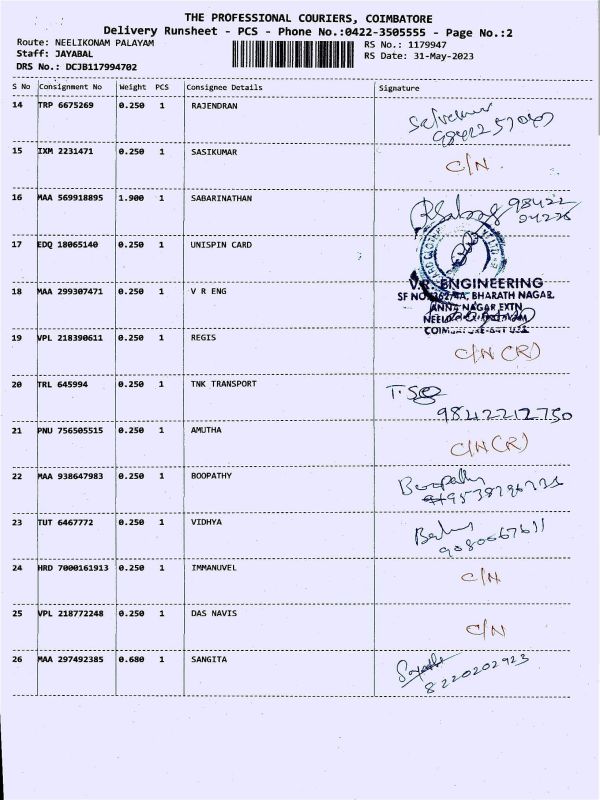 THE PROFESSIONAL COURIERS, COIMBATORE
Delivery Runsheet - PCS - Phone No.:0422-3505555 - Page No.:2
Route: NEELIKONAM PALAYAM
RS No.: 1179947
Staff: JAYABAL
RS Date: 31-May-2023
DRS No.: DCJB117994702
S No Consignment No Weight PCS Consignee Details Signature
14 TRP 6675269 0.250 1 RAJENDRAN
15 IXM 2231471 0.250 1 SASIKUMAR C/N
16 MAA 569918895 1.900 1 SABARINATHAN 98422
17 EDQ 18065140 0.250 1 UNISPIN CARD
18 MAA 299307471 0.250 1 V R ENG
V.R. ENGINEERING
BHARATH NAGAR.
ANNA NAGAR EXTN
19 VPL 218390611 0.250 1 REGIS C/N (R)
20 TRL 645994 0.250 1 TNK TRANSPORT
9842212750
21 PNU 756505515 0.250 1 AMUTHA C/N (R)
22 MAA 938647983 0.250 1 BOOPATHY Boopathy
23 TUT 6467772 0.250 1 VIDHYA
9080667611
24 HRD 7000161913 0.250 1 IMMANUVEL C/N
25 VPL 218772248 0.250 1 DAS NAVIS C/N
26 MAA 297492385 0.680 1 SANGITA
8220202923